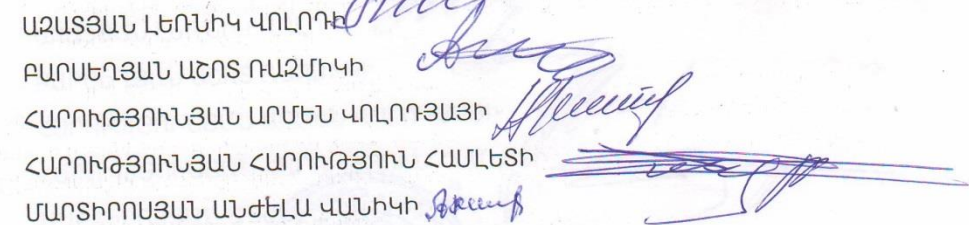 ԱԶԱՏՅԱՆ ԼԵՌՆԻԿ ՎՈԼՈԴԻ
ԲԱՐՍԵՂՅԱՆ ԱՇՈՏ ՌԱԶՄԻԿԻ
ՀԱՐՈՒԹՅՈՒՆՅԱՆ ԱՐՄԵՆ ՎՈԼՈԴՅԱՅԻ
ՀԱՐՈՒԹՅՈՒՆՅԱՆ ՀԱՐՈՒԹՅՈՒՆ ՀԱՄԼԵՏԻ
ՄԱՐՏԻՐՈՍՅԱՆ ԱՆԺԵԼԱ ՎԱՆԻԿԻ